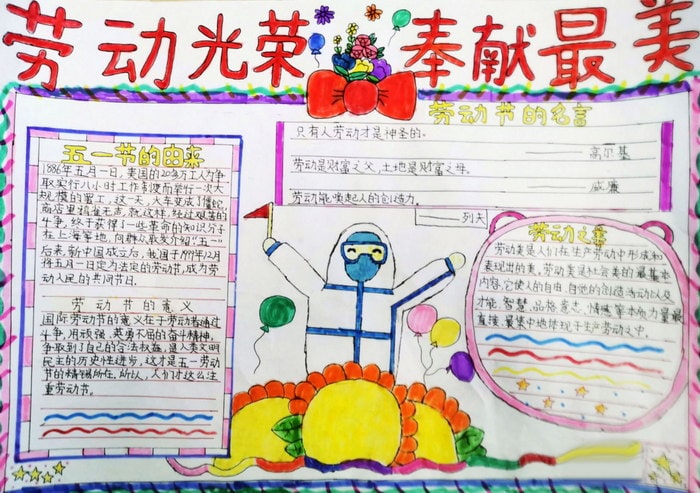 劳动光荣 奉献最美
劳动节的名言
只有人劳动才是神圣的。
—— 高尔基
劳动是财富之父,土地是财富之母。
—— 威廉
劳动能唤起人的创造力。
—— 列夫
五一节的由来
1886年五月一日,美国的20多万工人为争
取实行八小时工作制度而举行一次大
规模的罢工,这一天,火车变成了僵蛇
商店里鸦雀无声,就这样,经过艰苦的
斗争,终于获得了一些革命的知识分子
在上海等地,向群众散发介绍"五一"
后来,新中国成立后,我国于1949年12月
将五月一日定为法定的劳动节,成为劳
动人民的共同节日。
劳动节的意义
国际劳动节的意义在于劳动者通过
斗争,用顽强,英勇不屈的奋斗精神,
争取到了自己的合法权益,是人类文明
民主的历史性进步,这才是五一劳动
节的精髓所在,所以,人们才这么注
重劳动节。
劳动之美
劳动美是人们在生产劳动中形成和
表现出的美,劳动美是社会美的最基本
内容,它使人的自由,自觉的创造活动以及
才能,智慧,品格意志,情感等本质力量最
直接,最集中地体现于生产劳动之中。